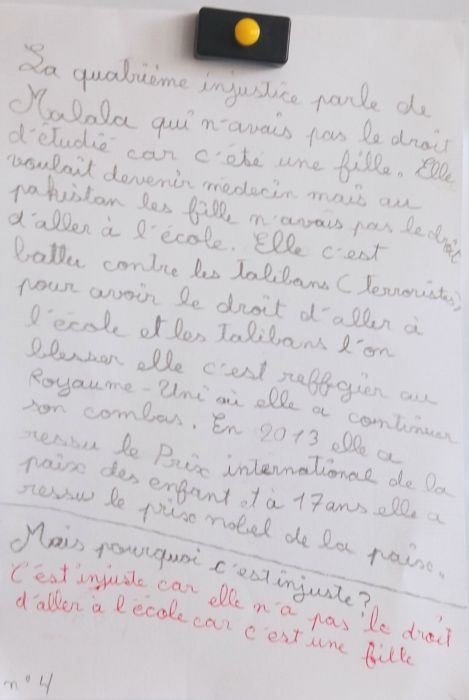 La quatrième injustice parle de
Malala qui n'avais pas le droit
d'étudié car c'éte une fille. Elle
voulait devenir médecin mais au
pakistan les fille n'avais pas le droit
d'aller à l'école. Elle c'est
battu contre les Talibans (terroristes)
pour avoir le droit d'aller à
l'école et les Talibans l'on
blesser elle c'est reffugier au
Royaume-Uni où elle a continuer
son combas. En 2013 elle a
ressu le Prix international de la
paix des enfant et à 17ans elle a
ressu le prix nobel de la paix.
Mais pourquoi c'est injuste?
C'est injuste car elle n'a pas le droit
d'aller à l'école car c'est une fille
n°4